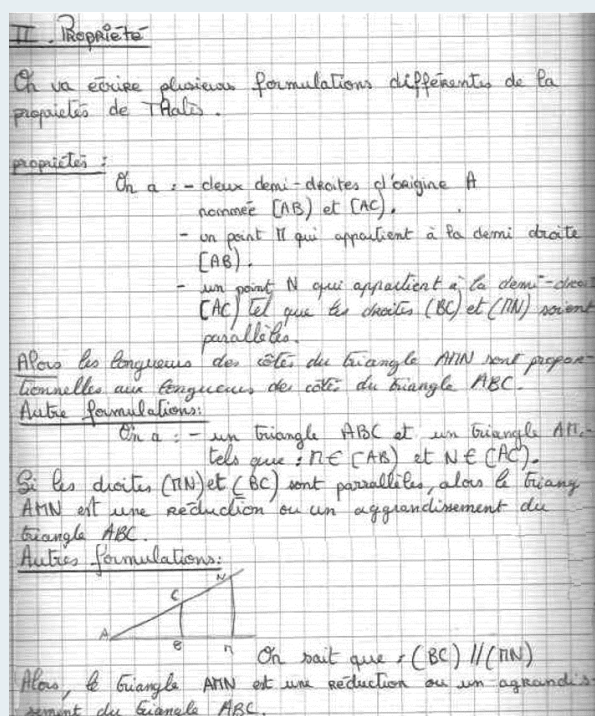 II. Propriété
On va écrire plusieurs formulations différentes de la
propriétés de THales.
propriétés :
On a : - deux demi-droites d'origine A
nommée [AB) et [AC).
- un point M qui appartient à la demi droite
[AB).
- un point N qui appartient à la demi-droi
[AC) tel que les droites (BC) et (MN) soient
parallèles.
Alors les longueurs des côtés du triangle AMN sont propor-
tionnelles aux longueurs des côtés du triangle ABC.
Autre formulations:
On a : - un triangle ABC et un triangle AM.
tels que : M∈ [AB) et N∈ [AC).
Si les droites (MN) et (BC) sont parralléles, alors le triang
AMN est une réduction ou un aggrandissement du
triangle ABC.
Autres formulations:
N
C
A
B
M
On sait que : (BC) // (MN)
Alors, le triangle AMN est une réduction ou un agrandis-
sement du triangle ABC.